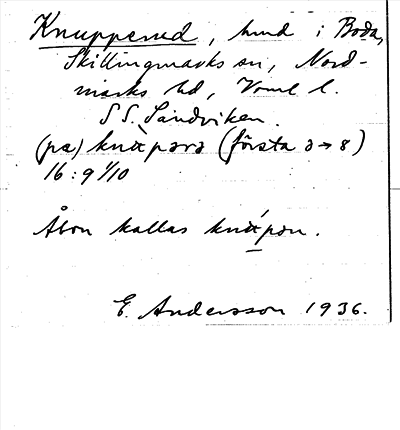 Knupperud, hmd i Boda,
Skillingmarks sn, Nord-
marks hd, Vrml l.
S S. Sandviken.
(pα) knὰpərə (första ə→8)
16:9 1/10
Åbon kallas knάpən.
E. Andersson 1936.